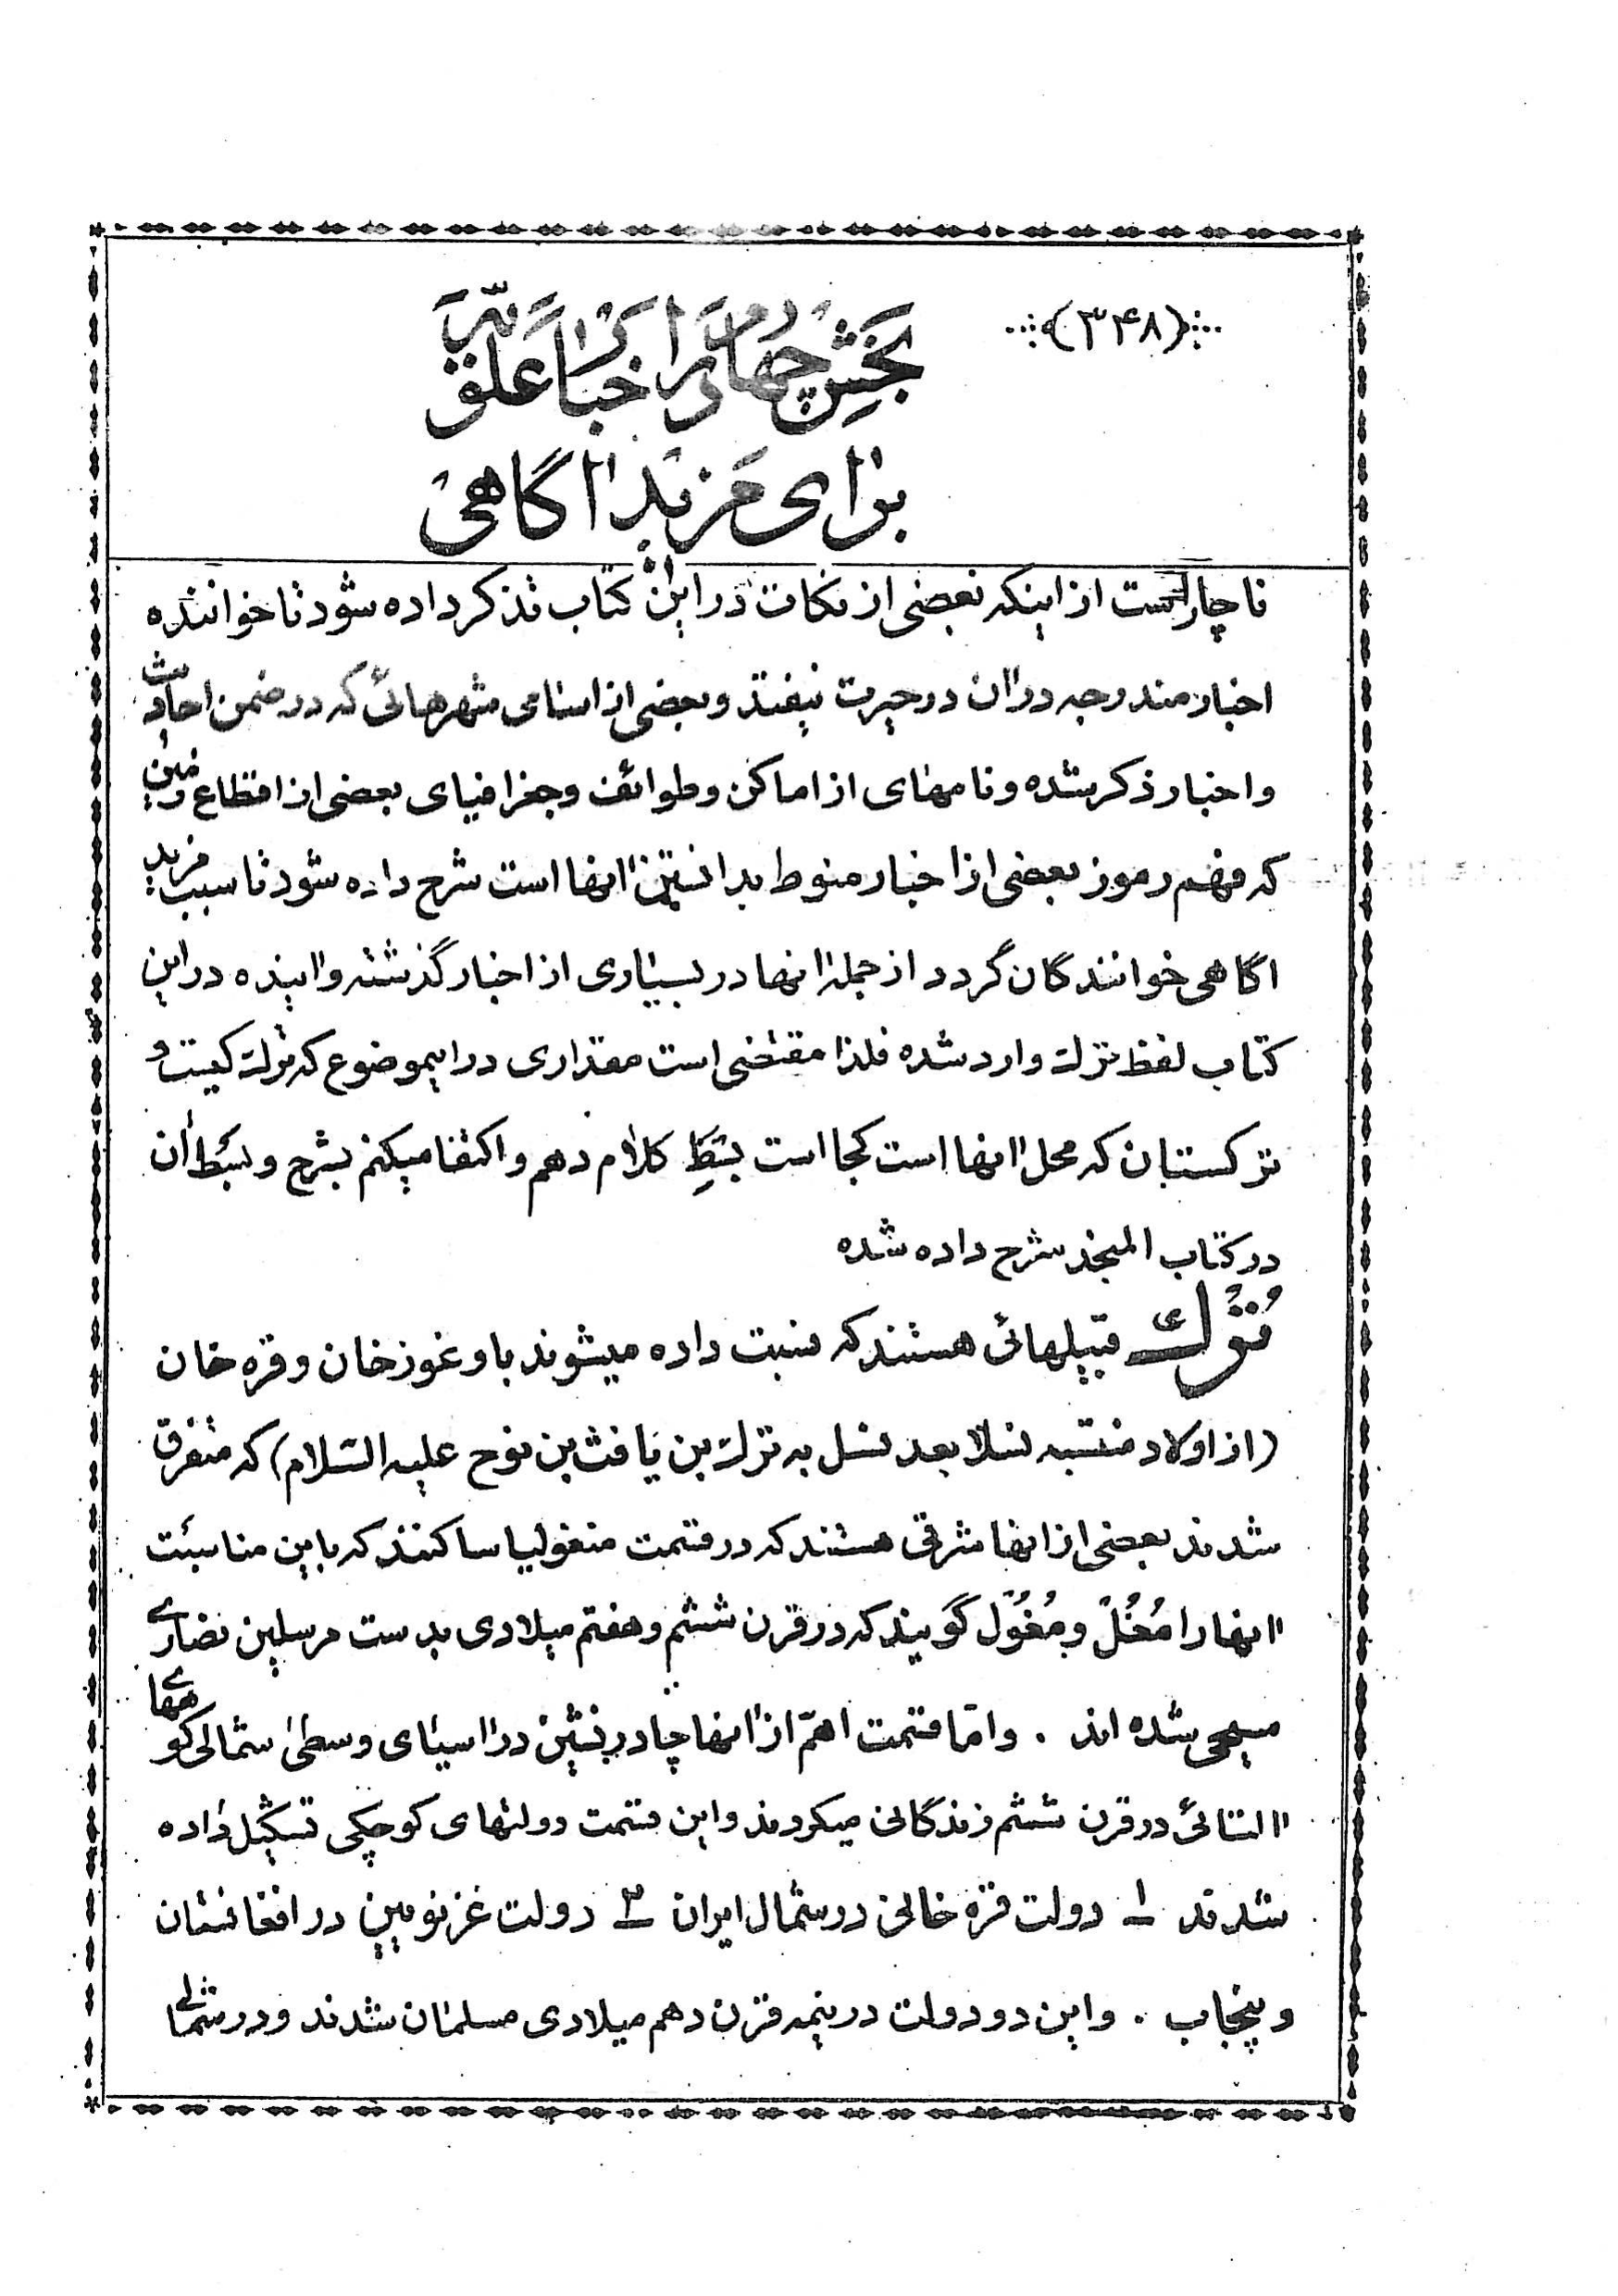 (۳۴۸)
بخش چهارم اخبار علویّه
برای مزید آگاهی
ناچار است از اینکه بعضی از نکات در این کتاب تذکر داده شود تا خواننده
اخبار مندرجه در آن در حیرت نیفتد و بعضی از اسامی شهرهائی که در ضمن احادیث
و اخبار ذکر شده و نامهای از اماکن و طوائف و جغرافیای بعضی از اقطاع زمین
که فهم رموز بعضی از اخبار منوط بدانستن آنها است شرح داده شود تا سبب مزید
آگاهی خوانندگان گردد از جمله آنها در بسیاری از اخبار گذشته و آینده در این
کتاب لفظ ترک وارد شده فلذا مقتضی است مقداری در اینموضوع که ترک کیست و
ترکستان که محل آنها است کجا است بسط کلام دهم و اکتفا میکنم بشرح و بسط آن
در کتاب المنجد شرح داده شده
تُرک قبیلهائی هستند که نسبت داده میشوند باوغوزخان و قره خان
(از اولاد منتسبه نسلا بعد نسل به ترک بن یافث بن نوح علیه السّلام) که متفرق
شدند بعضی از آنها شرقی هستند که در قسمت منغولیا ساکنند که باین مناسبت
آنها را مُغُل و مُغُول گویند که در قرن ششم و هفتم میلادی بدست مرسلین نصاری
مسیحی شده اند . و امّا قسمت اهمّ از آنها چادرنشین در آسیای وسطی شمالی کوههای
آلتائی در قرن ششم زندگانی میکردند و این قسمت دولتهای کوچکی تشکیل داده
شدند ۱ـ دولت قره خانی در شمال ایران ۲ـ دولت غزنویین در افغانستان
و پنجاب . و این دو دولت در نیمه قرن دهم میلادی مسلمان شدند و در شمالی